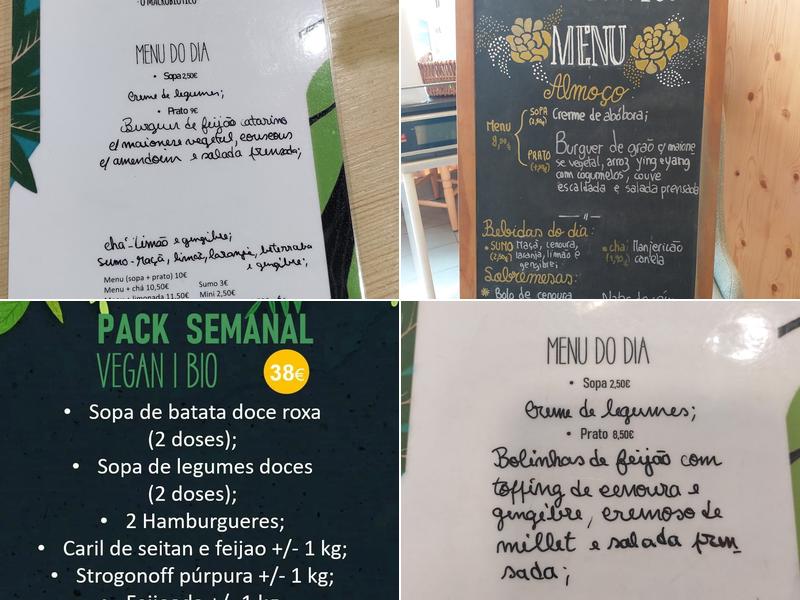 O MACROBIÓTICO
MENU DO DIA
• Sopa 2,50€
Creme de legumes;
• Prato 9€
Burguer de feijão catarino
c/ maionese vegetal, couscous
c/ amendoim e salada prensada;
chá - Limão e gengibre;
Sumo - Maçã, limão, laranja, beterraba
e gengibre;
Menu (sopa + prato) 10€
Menu + chá 10,50€
Sumo 3€
limonada 11,50€
Mini 2,50€
MENU
Almoço
Menu
SOPA
Creme de abóbora;
PRATO
Burguer de grão c/ maione
se vegetal, arroz ying e yang
com cogumelos, couve
escaldada e salada prensada
Bebidas do dia:
• SUMO Maçã, cenoura,
(2,50€) laranja, limão e
gengibre;
• chá: Manjericão
canela
Sobremesas:
Bolo de cenoura
PACK SEMANAL
VEGAN | BIO
38€
• Sopa de batata doce roxa
(2 doses);
• Sopa de legumes doces
(2 doses);
• 2 Hamburgueres;
• Caril de seitan e feijao +/- 1 kg;
• Strogonoff púrpura +/- 1 kg;
• Feijoada +/- 1 kg
MENU DO DIA
• Sopa 2,50€
Creme de legumes;
• Prato 8,50€
Bolinhas de feijão com
topping de cenoura e
gengibre, cremoso de
millet e salada pren_
sada;